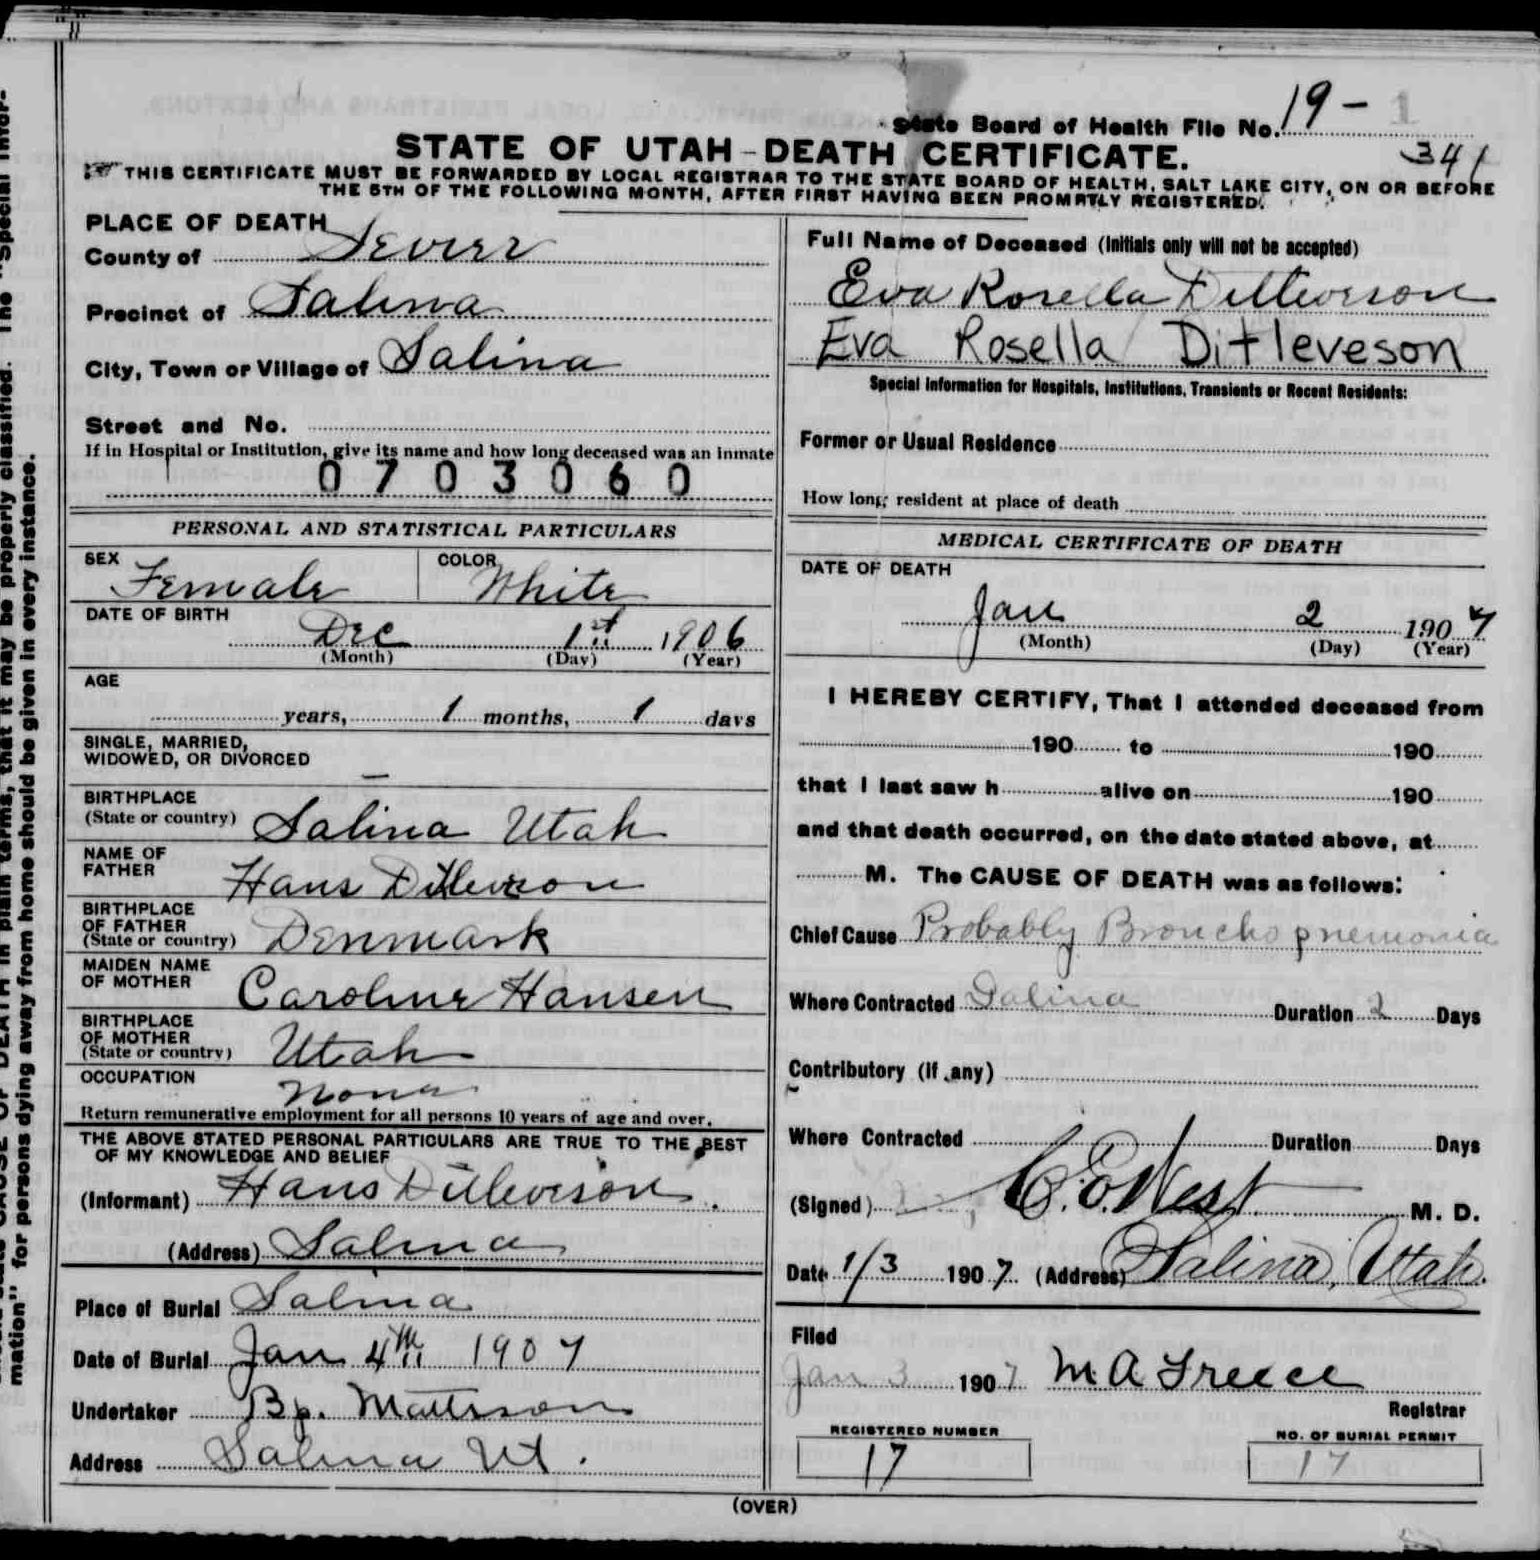 State Board of Health File No. 19 -
341
STATE OF UTAH - DEATH CERTIFICATE.
THIS CERTIFICATE MUST BE FORWARDED BY LOCAL REGISTRAR TO THE STATE BOARD OF HEALTH, SALT LAKE CITY, ON OR BEFORE
THE 5TH OF THE FOLLOWING MONTH, AFTER FIRST HAVING BEEN PROMPTLY REGISTERED.
PLACE OF DEATH
County of Sevier
Precinct of Salina
City, Town or Village of Salina
Street and No.
If in Hospital or Institution, give its name and how long deceased was an inmate
0703060
PERSONAL AND STATISTICAL PARTICULARS
SEX Female COLOR White
DATE OF BIRTH
Dec 1st 1906
(Month) (Day) (Year)
AGE
years, 1 months, 1 days
SINGLE, MARRIED,
WIDOWED, OR DIVORCED —
BIRTHPLACE
(State or country) Salina Utah
NAME OF
FATHER Hans Ditleveson
BIRTHPLACE
OF FATHER
(State or country) Denmark
MAIDEN NAME
OF MOTHER Caroline Hansen
BIRTHPLACE
OF MOTHER
(State or country) Utah
OCCUPATION None
Return remunerative employment for all persons 10 years of age and over.
THE ABOVE STATED PERSONAL PARTICULARS ARE TRUE TO THE BEST
OF MY KNOWLEDGE AND BELIEF
(Informant) Hans Ditleveson.
(Address) Salina
Place of Burial Salina
Date of Burial Jan 4th 1907
Undertaker Bp. Mattsson
Address Salina Ut.
Full Name of Deceased (Initials only will not be accepted)
Eva Rosella Ditleveson
Eva Rosella Ditleveson
Special Information for Hospitals, Institutions, Transients or Recent Residents:
Former or Usual Residence
How long resident at place of death
MEDICAL CERTIFICATE OF DEATH
DATE OF DEATH
Jan 2 1907
(Month) (Day) (Year)
I HEREBY CERTIFY, That I attended deceased from
190 to 190
that I last saw h alive on 190
and that death occurred, on the date stated above, at
M. The CAUSE OF DEATH was as follows:
Chief Cause Probably Broncho pnemonia
Where Contracted Salina Duration 2 Days
Contributory (if any)
Where Contracted Duration Days
(Signed) C. E. West M. D.
Date 1/3 1907 (Address) Salina, Utah.
Filed
Jan 3 1907 M A Greece
Registrar
REGISTERED NUMBER
17
NO. OF BURIAL PERMIT
17
(OVER)
mation" for persons dying away from home should be given in every instance.